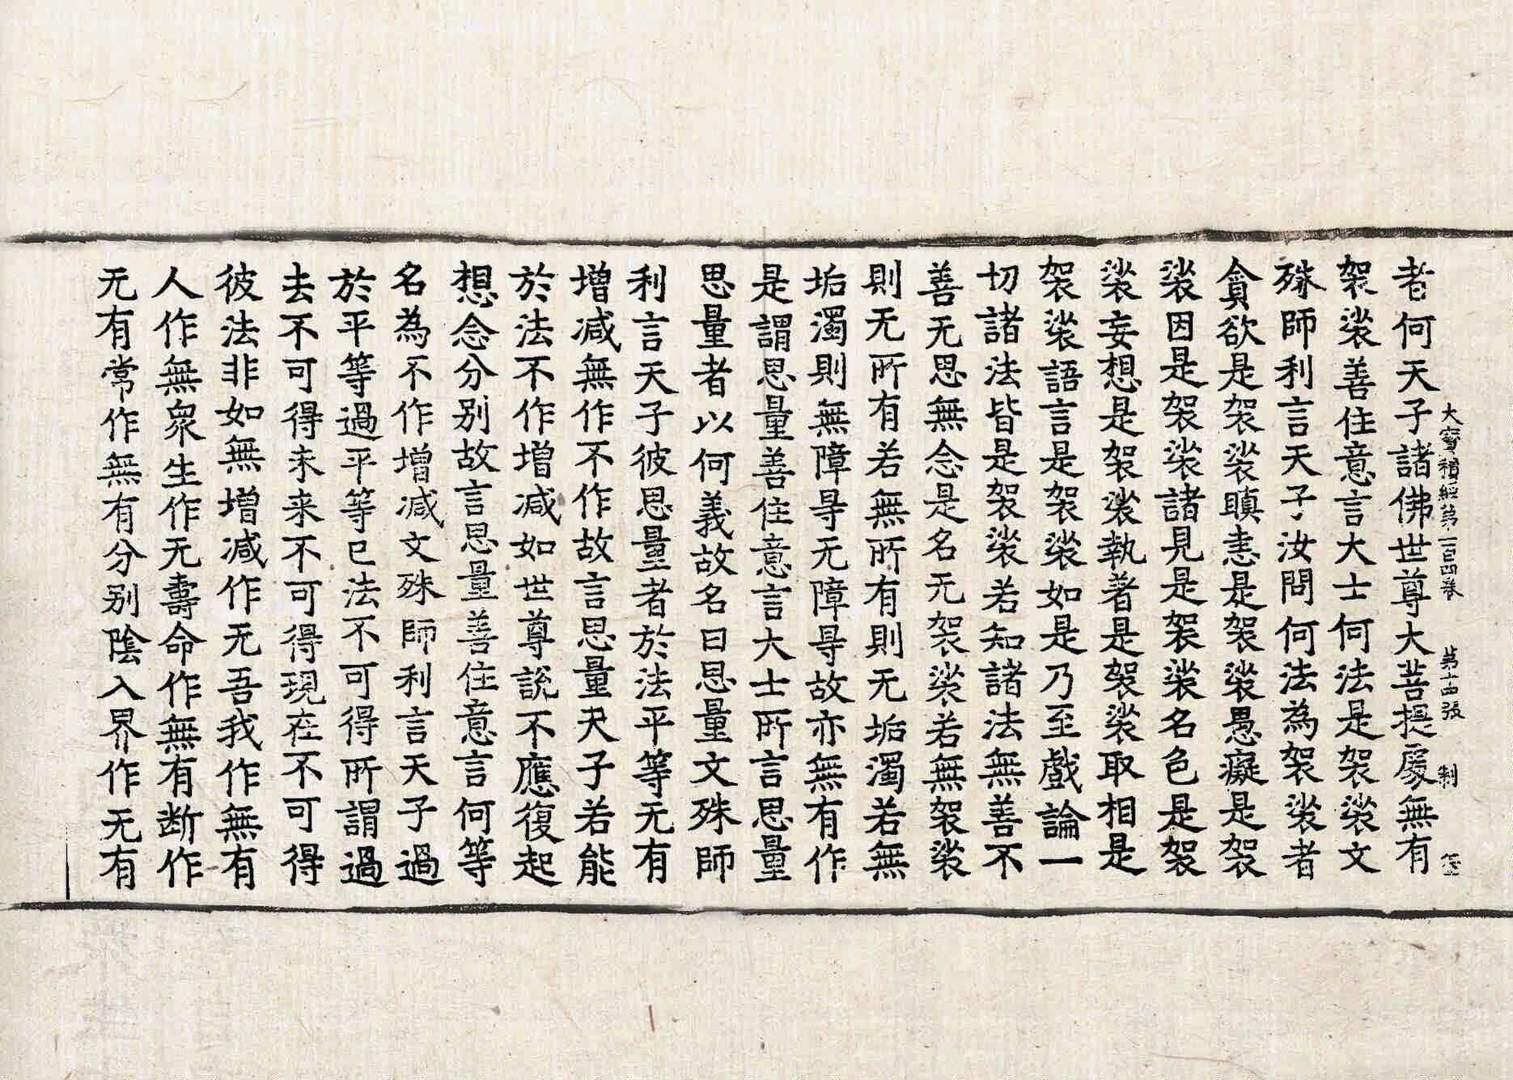 大寶積經第一百四卷　第十四張　制
老何天子諸佛世尊大菩提處無有
袈裟善住意言大士何法是袈裟文
殊師利言天子汝問何法為袈裟者
貪欲是袈裟瞋恚是袈裟愚癡是袈
裟因是袈裟諸見是袈裟名色是袈
裟妄想是袈裟執著是袈裟取相是
袈裟語言是袈裟如是乃至戲論一
切諸法皆是袈裟若知諸法無善不
善无思無念是名无袈裟若無袈裟
則无所有若無所有則无垢濁若無
垢濁則無障㝵无障㝵故亦無有作
是謂思量善住意言大士所言思量
思量者以何義故名曰思量文殊師
利言天子彼思量者於法平等无有
增减無作不作故言思量天子若能
於法不作增减如世尊說不應復起
想念分别故言思量善住意言何等
名為不作增减文殊師利言天子過
於平等過平等已法不可得所謂過
去不可得未来不可得現在不可得
彼法非如無增减作无吾我作無有
人作無衆生作无壽命作無有断作
无有常作無有分别陰入界作无有